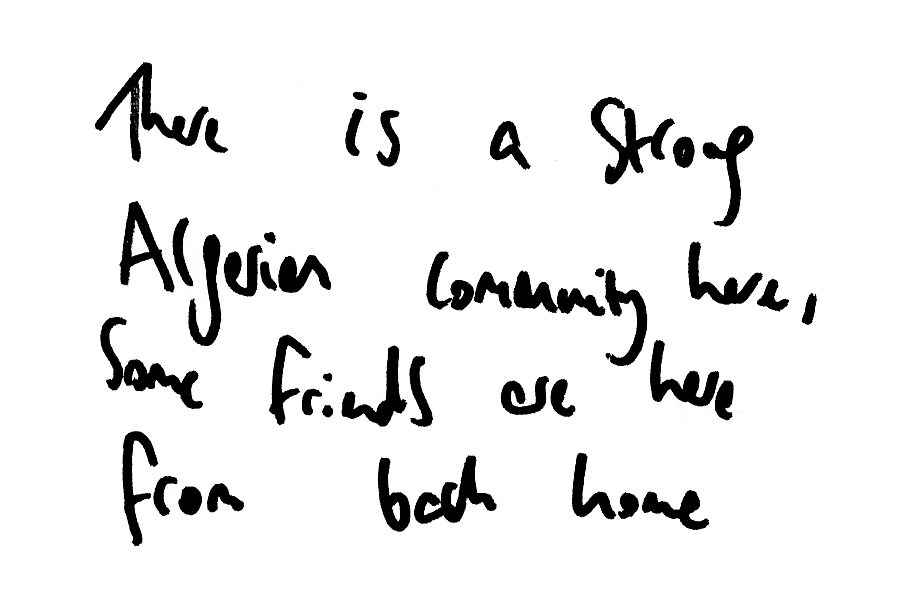 There is a strong
Algerian community here,
Some friends are here
from back home